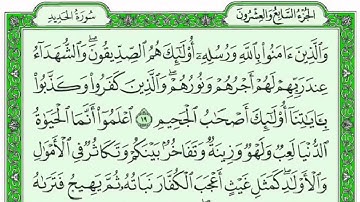 الجزء السابع والعشرون
سورة الحديد
وَالَّذِينَ ءَامَنُوا۟ بِاللَّهِ وَرُسُلِهِۦٓ أُو۟لَٰٓئِكَ هُمُ الصِّدِّيقُونَۖ وَالشُّهَدَآءُ
عِندَ رَبِّهِمْ لَهُمْ أَجْرُهُمْ وَنُورُهُمْۖ وَالَّذِينَ كَفَرُوا۟ وَكَذَّبُوا۟
بِـَٔايَٰتِنَآ أُو۟لَٰٓئِكَ أَصْحَٰبُ الْجَحِيمِ ١٩ اعْلَمُوٓا۟ أَنَّمَا الْحَيَوٰةُ
الدُّنْيَا لَعِبٌ وَلَهْوٌ وَزِينَةٌ وَتَفَاخُرٌۢ بَيْنَكُمْ وَتَكَاثُرٌ فِى الْأَمْوَٰلِ
وَالْأَوْلَٰدِۖ كَمَثَلِ غَيْثٍ أَعْجَبَ الْكُفَّارَ نَبَاتُهُۥ ثُمَّ يَهِيجُ فَتَرَىٰهُ